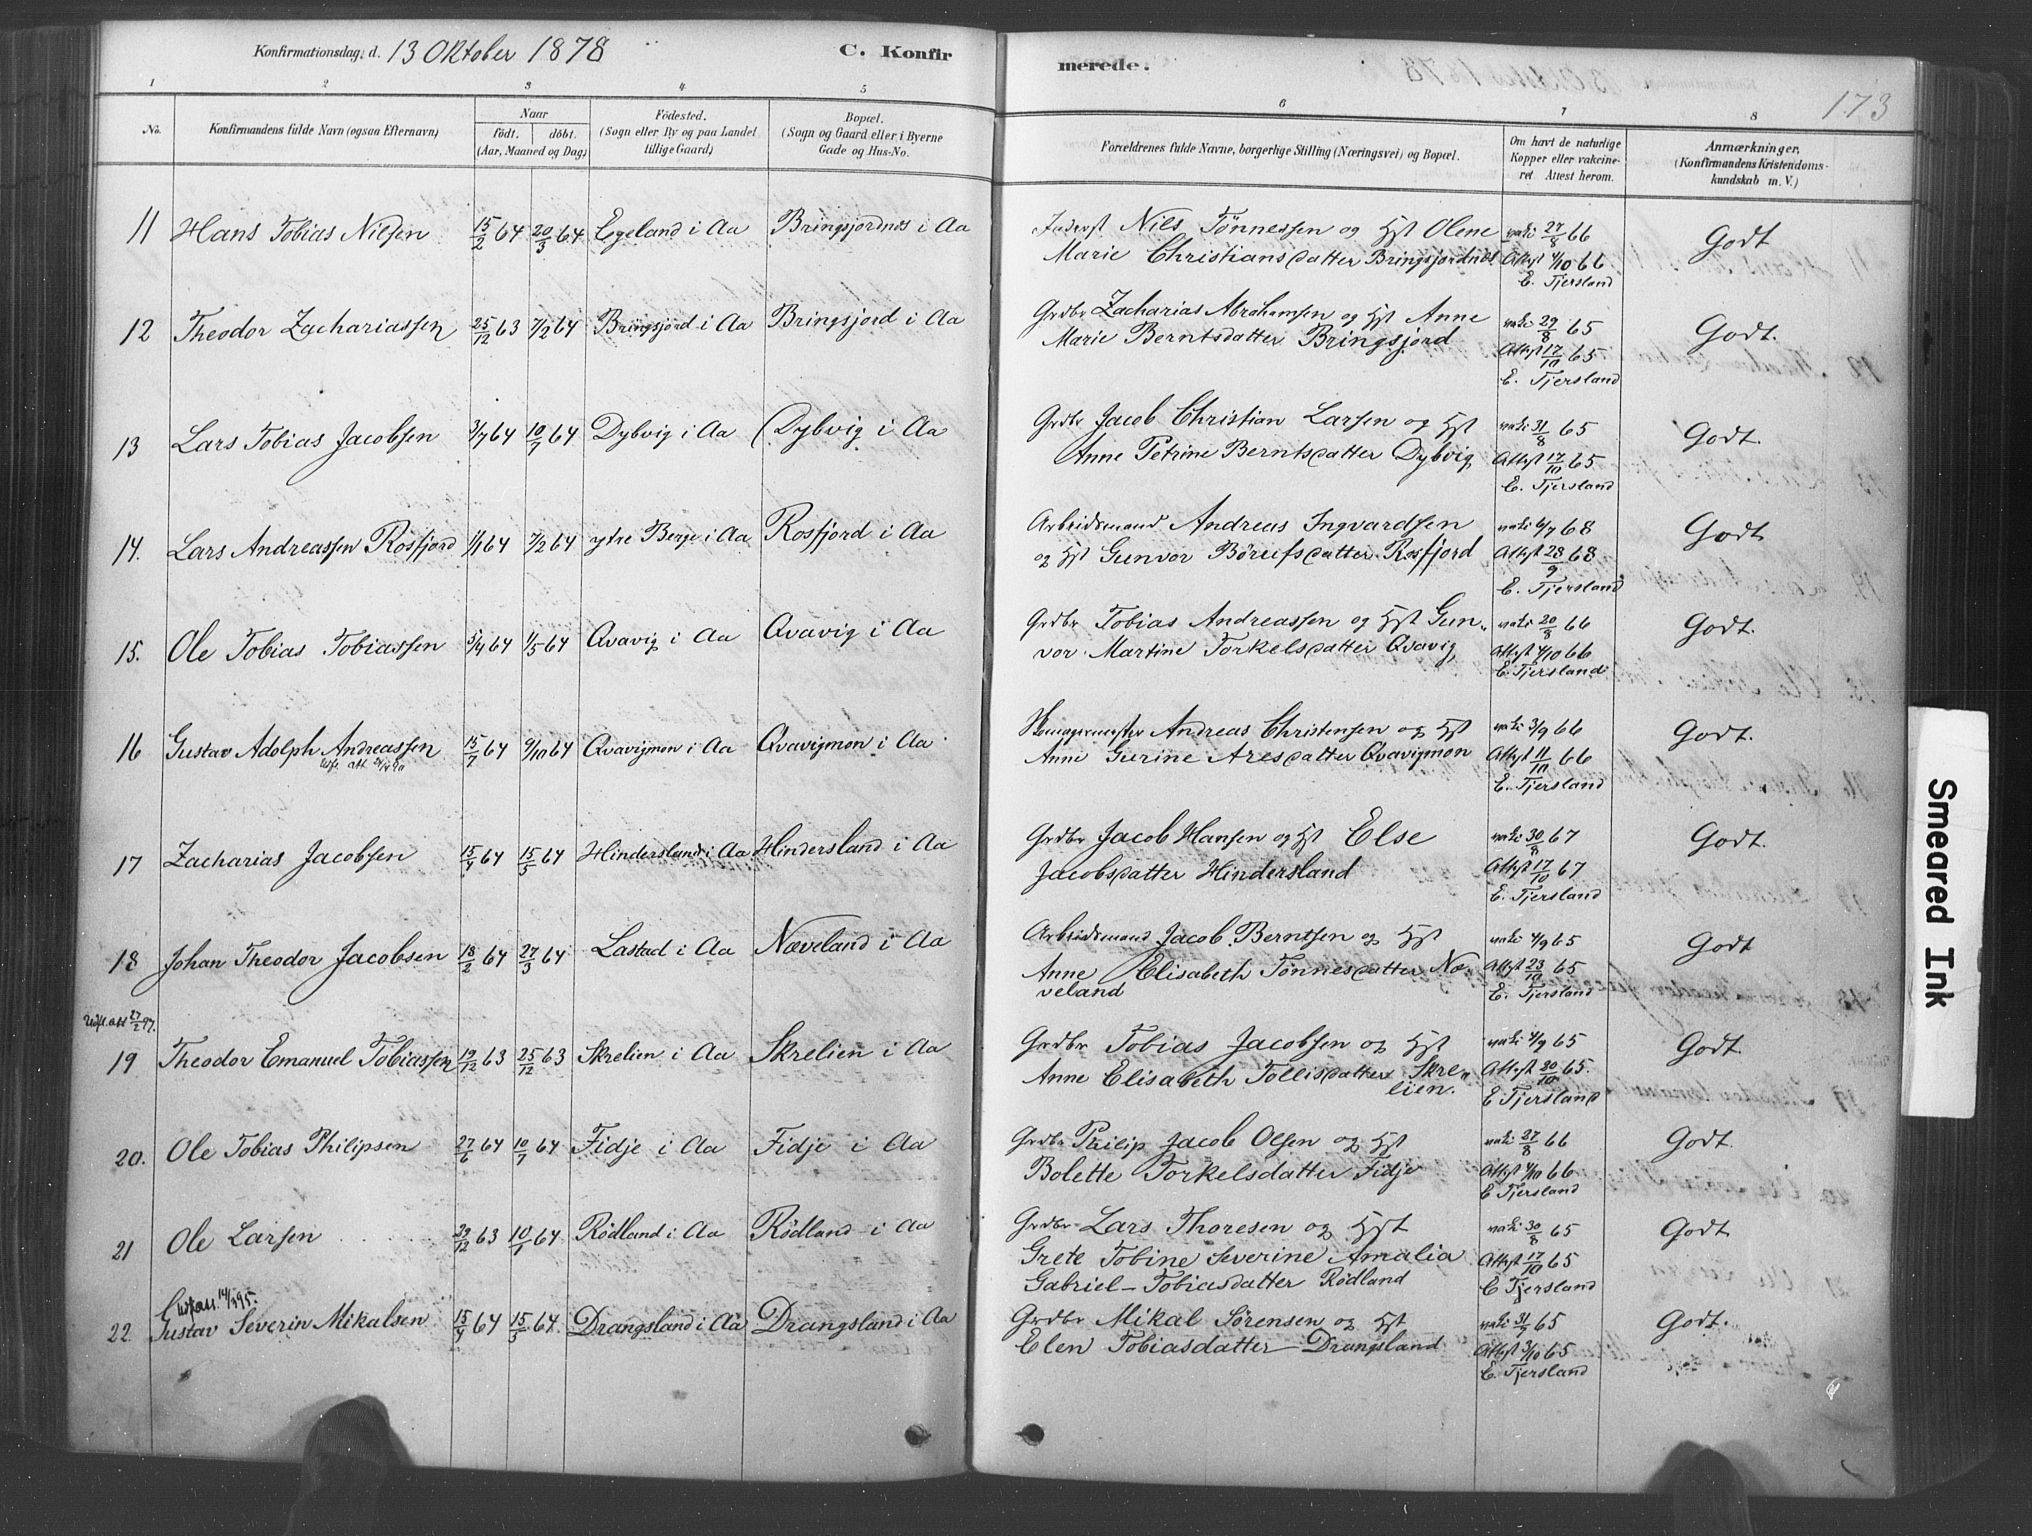 Konfirmationsdag: d. 13 Oktober 1878
C. Konfir
merede.
173
1 2 3 4 5 6 7 8
No.
Konfirmandens fulde Navn (ogsaa Efternavn)
Naar
födt. döbt.
(Aar, Maaned og Dag)
Födested.
(Sogn eller By og paa Landet
tillige Gaard)
Bopæl.
(Sogn og Gaard eller i Byerne
Gade og Hus-No.
Forældrenes fulde Navne, borgerlige Stilling (Næringsvei) og Bopæl.
Om havt de naturlige
Kopper eller vakcine-
ret Attest herom.
Anmærkninger,
(Konfirmandens Kristendoms-
kundskab m. V.)
11 Hans Tobias Nilsen 15/2 64 20/3 64 Egeland i Aa Bringsjordnæs i Aa
Nils Tønnessen og Hst Olene
Marie Christiansdatter Bringsjordnæs
vaki 27/8 66
Attest 4/10 66
E. Tjersland
Godt
12 Theodor Zachariassen 25/12 63 7/2 64 Bringsjord i Aa Bringsjord i Aa
Grdbr Zacharias Abrahamsen og Hst Anne
Marie Berntsdatter Bringsjord
vaki 29/8 65
Attest 17/10 65
E. Tjersland
Godt.
13 Lars Tobias Jacobsen 3/7 64 10/7 64 Dybvig i Aa Dybvig i Aa
Grdbr Jacob Christian Larsen og Hst
Anne Petrine Berntsdatter Dybvig
vaki 31/8 65
Attest 17/10 65
E. Tjersland
Godt.
14. Lars Andreassen Rosfjord 1/1 64 7/2 64 ydre Berge i Aa Rosfjord i Aa
Arbeidsmand Andreas Ingvardsen
og Hst Gunvor Børeifsdatter Rosfjord
vaki 6/7 68
Attest 28/9 68
E. Tjersland
Godt
15. Ole Tobias Tobiassen 5/4 64 1/5 64 Qvavig i Aa Qvavig i Aa
Grdbr Tobias Andreassen og Hst Gun-
vor Martine Torkelsdatter Qvavig
vaki 20/8 66
Attest 4/10 66
E. Tjersland
Godt.
16 Gustav Adolph Andreassen 15/7 64 9/10 64 Qvavigmon i Aa Qvavigmon i Aa
Andreas Christensen og Hst
Anne Gurine Aresdatter Qvavigmon
vaki 3/9 66
Attest 11/10 66
E. Tjersland
Godt.
17 Zacharias Jacobsen 15/4 64 15/5 64 Hindersland i Aa Hindersland i Aa
Grdbr Jacob Hansen og Hst Else
Jacobsdatter Hindersland
vaki 30/8 67
Attest 17/10 67
E. Tjersland
Godt.
18 Johan Theodor Jacobsen 18/2 64 27/3 64 Lastad i Aa Næveland i Aa
Arbeidsmand Jacob Berntsen og Hst
Anne Elisabeth Tønnesdatter Næ-
veland
vaki 4/9 65
Attest 23/10 65
E. Tjersland
Godt
Udfl. att 27/2 97.
19 Theodor Emanuel Tobiassen 19/12 63 25/12 63 Skrelien i Aa Skrelien i Aa
Grdbr Tobias Jacobsen og Hst
Anne Elisabeth Tollisdatter Skre-
lien.
vaki 4/9 65
Attest 20/10 65.
E Tjersland
Godt
20. Ole Tobias Philipsen 27/6 64 10/7 64 Fidje i Aa Fidje i Aa
Grdbr Philip Jacob Olsen og Hst
Bolette Torkelsdatter Fidje
vaki 27/8 66
Attest 4/10 66
E Tjersland
Godt.
21 Ole Larsen 29/12 63 10/1 64 Rödland i Aa Rödland i Aa
Grdbr Lars Thoresen og Hst
Grete Tobine Severine Amalia
Gabriel-Tobiasdatter Rödland
vaki 30/8 65
Attest 17/10 65
E Tjersland
Godt
22. Gustav Severin Mikalsen 15/4 64 15/5 64 Drangsland i Aa Drangsland i Aa
Grdbr Mikal Sörensen og Hst
Elen Tobiasdatter Drangsland
vaki 31/7 65
Attest 3/10 65
E. Tjersland
Godt.
Smeared Ink